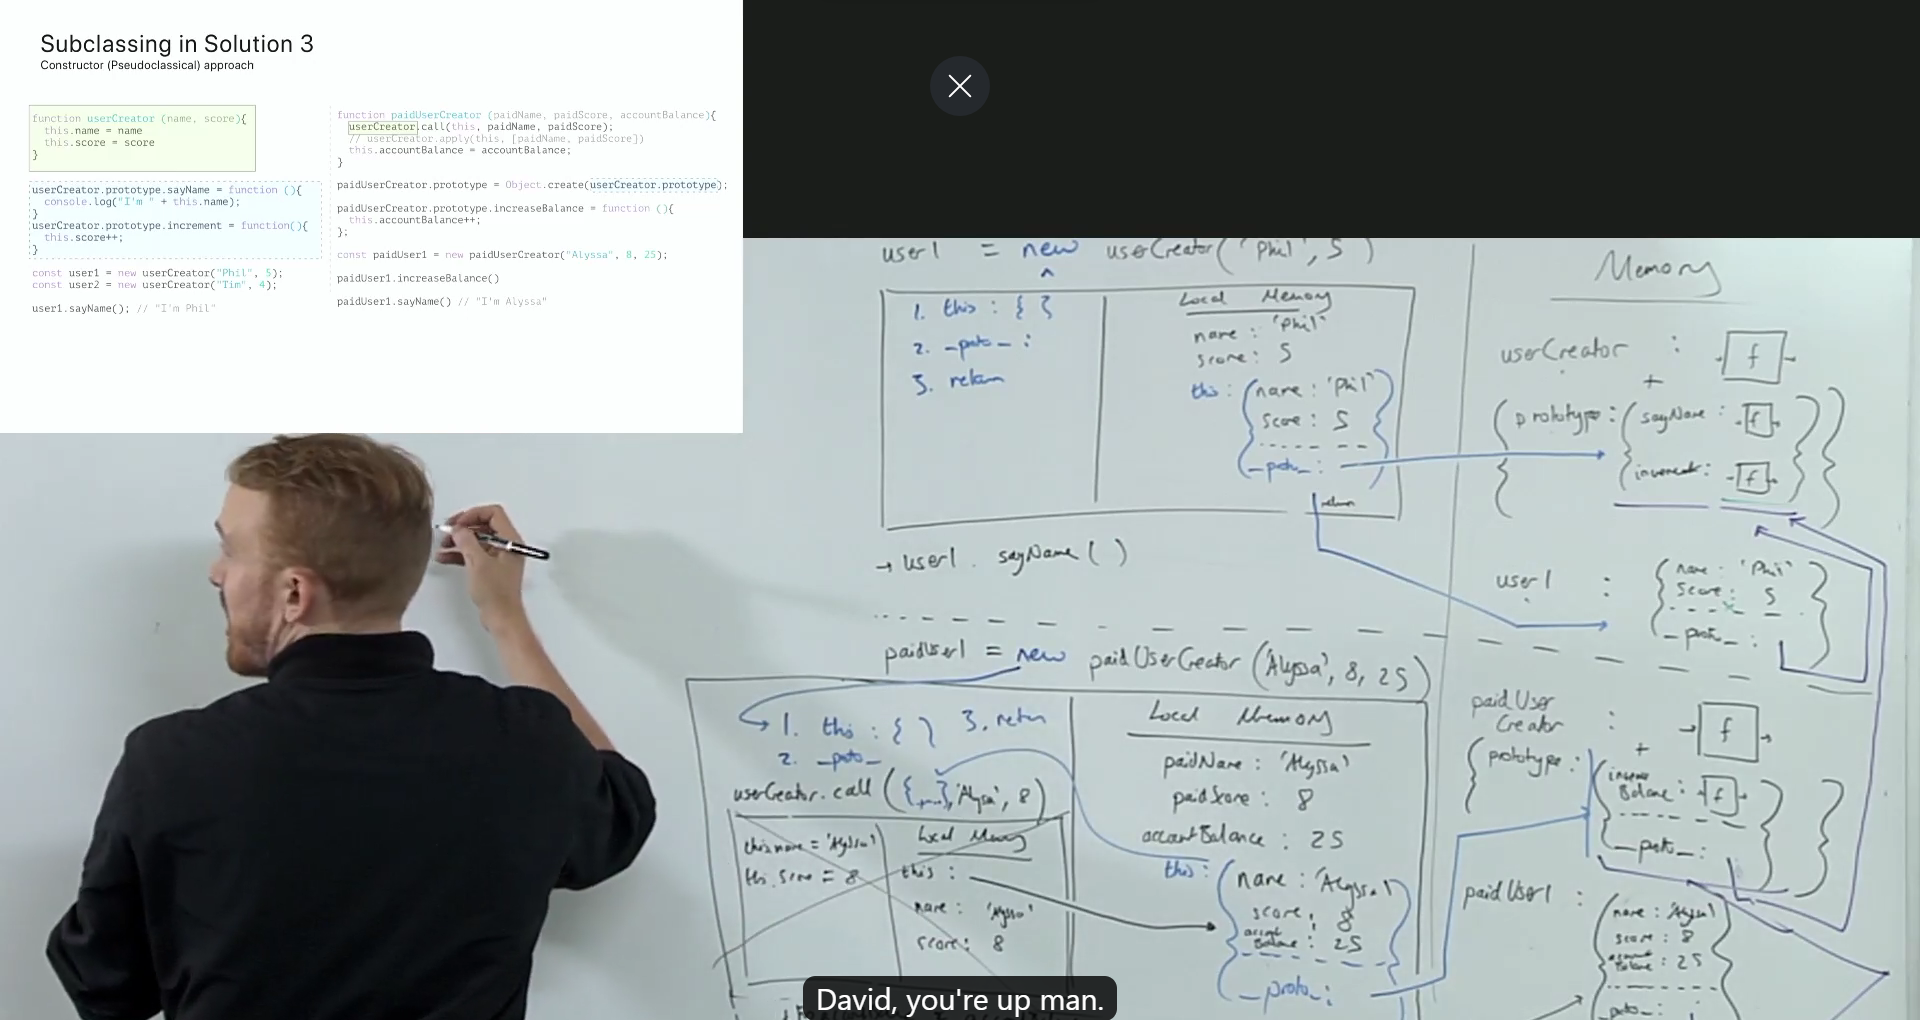 Subclassing in Solution 3
Constructor (Pseudoclassical) approach
function userCreator (name, score){
this.name = name
this.score = score
}
userCreator.prototype.sayName = function (){
console.log("I'm " + this.name);
}
userCreator.prototype.increment = function(){
this.score++;
}
const user1 = new userCreator("Phil", 5);
const user2 = new userCreator("Tim", 4);
user1.sayName(); // "I'm Phil"
function paidUserCreator (paidName, paidScore, accountBalance){
userCreator.call(this, paidName, paidScore);
// userCreator.apply(this, [paidName, paidScore])
this.accountBalance = accountBalance;
}
paidUserCreator.prototype = Object.create(userCreator.prototype);
paidUserCreator.prototype.increaseBalance = function (){
this.accountBalance++;
};
const paidUser1 = new paidUserCreator("Alyssa", 8, 25);
paidUser1.increaseBalance()
paidUser1.sayName() // "I'm Alyssa"
user1 = new userCreator('Phil', 5)
1. this : { }
2. _proto_ :
3. return
Local Memory
name : 'Phil'
score : 5
this : { name : 'Phil'
score : 5
_proto_ :
return
→ user1 . sayName ( )
Memory
userCreator : f
+
prototype : { sayName : f
increment : f
user1 : { name : 'Phil'
score : 5
_proto_ :
paidUser1 = new paidUserCreator ('Alyssa', 8, 25)
1. this : { } 3. return
2. _proto_
userCreator.call ({...}, 'Alyssa', 8)
this.name = 'Alyssa'
this.score = 8
Local Memory
this :
name : 'Alyssa'
score : 8
Local Memory
paidName : 'Alyssa'
paidScore : 8
accountBalance : 25
this : { name : 'Alyssa'
score : 8
account Balance : 25
_proto_ :
paidUser
Creator : f
+
prototype : { increase
Balance : f
_proto_ :
paidUser1 : { name : 'Alyssa'
score : 8
account Balance : 25
_proto_ :
David, you're up man.